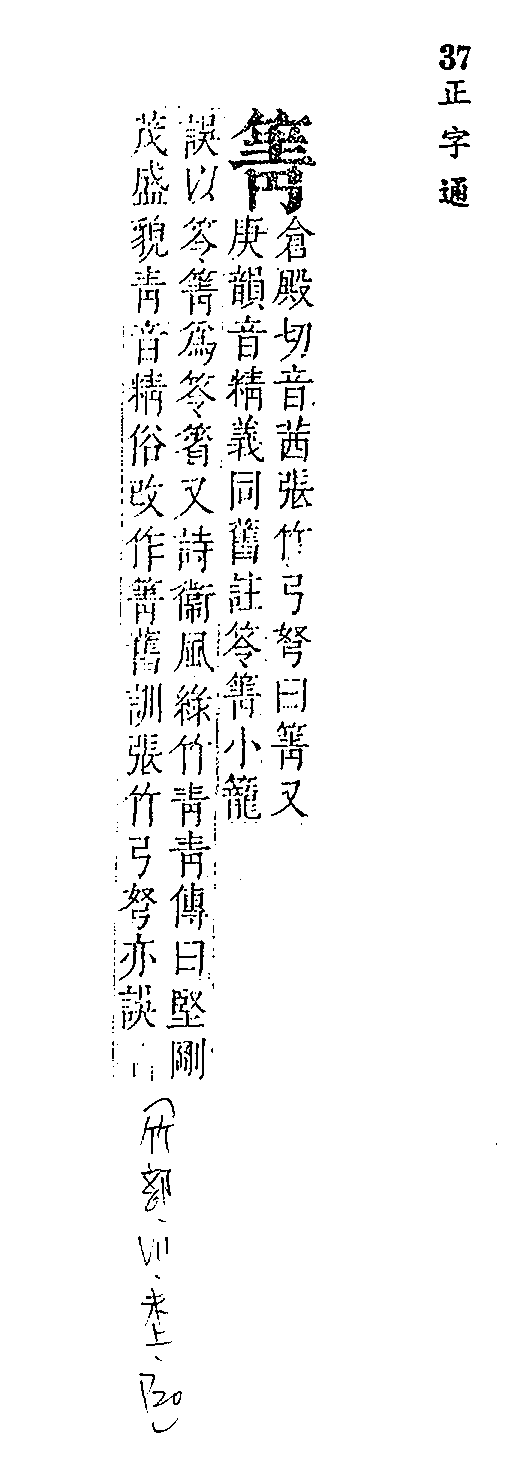 37正字通
箐
倉殿切音茜張竹弓弩曰箐又
庚韻音精義同舊註笭箐小籠
誤以笭箐爲笭箵又詩衞風綠竹青青傳曰堅剛
茂盛貌青音精俗改作箐舊訓張竹弓弩亦誤
(竹部、未上、